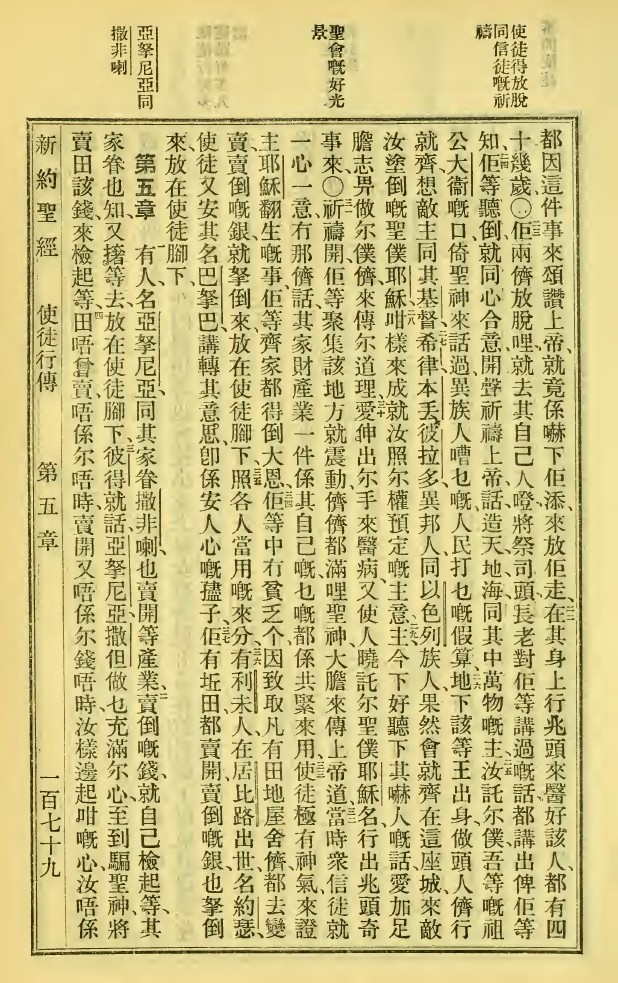 使徒得放脫
同信徒嘅祈
禱
聖會嘅好光
景
亞拏尼亞同
撒非喇
都因這件事來頌讚上帝、就竟係嚇下佢添來放佢走、二二在其身上行兆頭來醫好該人、都有四
十幾歲〇二三佢兩儕放脫哩就去其自己人嶝將祭司頭長老對佢等講過嘅話都講出俾佢等
知、二四佢等聽倒就同心合意開聲祈禱上帝話造天地海同其中萬物嘅主、二五汝託尔僕吾等嘅祖
公大衞嘅口倚聖神來話過、異族人嘈乜嘅、人民打乜嘅假算、二六地下該等王出身、做頭人儕行
就齊想敵主同其基督、二七希律本丟彼拉多異邦人同以色列族人、果然會就齊在這座城來敵
汝塗倒嘅聖僕耶穌、二八咁樣來成就汝照尔權預定嘅主意、二九主今下好聽下其嚇人嘅話、愛加足
膽志畀做尔僕儕來傳尔道理、三十愛伸出尔手來醫病、又使人曉託尔聖僕耶穌名行出兆頭奇
事來、〇三一祈禱開佢等聚集該地方就震動、儕儕都滿哩聖神、大膽來傳上帝道、三二當時衆信徒就
一心一意、冇那儕話其家財產業一件係其自己嘅、乜嘅都係共緊來用、三三使徒極有神氣來證
主耶穌翻生嘅事、佢等齊家都得倒大恩、三四佢等中冇貧乏个、因致取凡有田地屋舍儕都去變
賣、賣倒嘅銀、就拏倒來放在使徒腳下、三五照各人當用嘅來分、三六有利未人在居比路出世、名約瑟、
使徒又安其名巴拏巴、講轉其意思、卽係安人心嘅㜽子、三七佢有坵田都賣開、賣倒嘅銀也拏倒
來、放在使徒腳下、
第五章 一有人名亞拏尼亞、同其家眷撒非喇、也賣開等產業、二賣倒嘅錢、就自己檢起等、其
家眷也知、又㩗等去、放在使徒腳下、三彼得就話、亞拏尼亞、撒但做乜充滿尔心、至到騙聖神、將
賣田該錢來檢起等、四田唔曾賣、唔係尔唔時、賣開又唔係尔錢唔時、汝樣邊起咁嘅心、汝唔係
新約聖經 使徒行傳 第五章 一百七十九